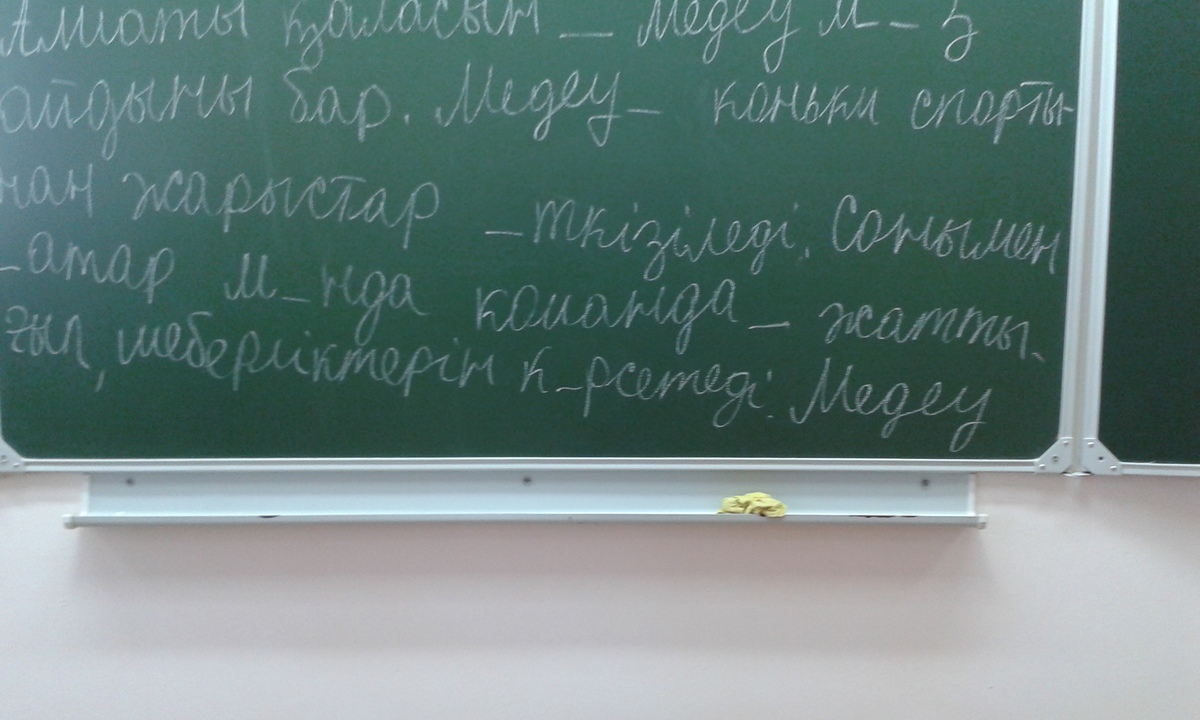 Алматы қаласын _ Медеу м_з
айдыны бар. Медеу_ коньки спорты-
нан жарыстар _ткізіледі. Сонымен
_атар м_нда команда_ жатты-
ғып, шеберліктерін к_рсетеді. Медеу